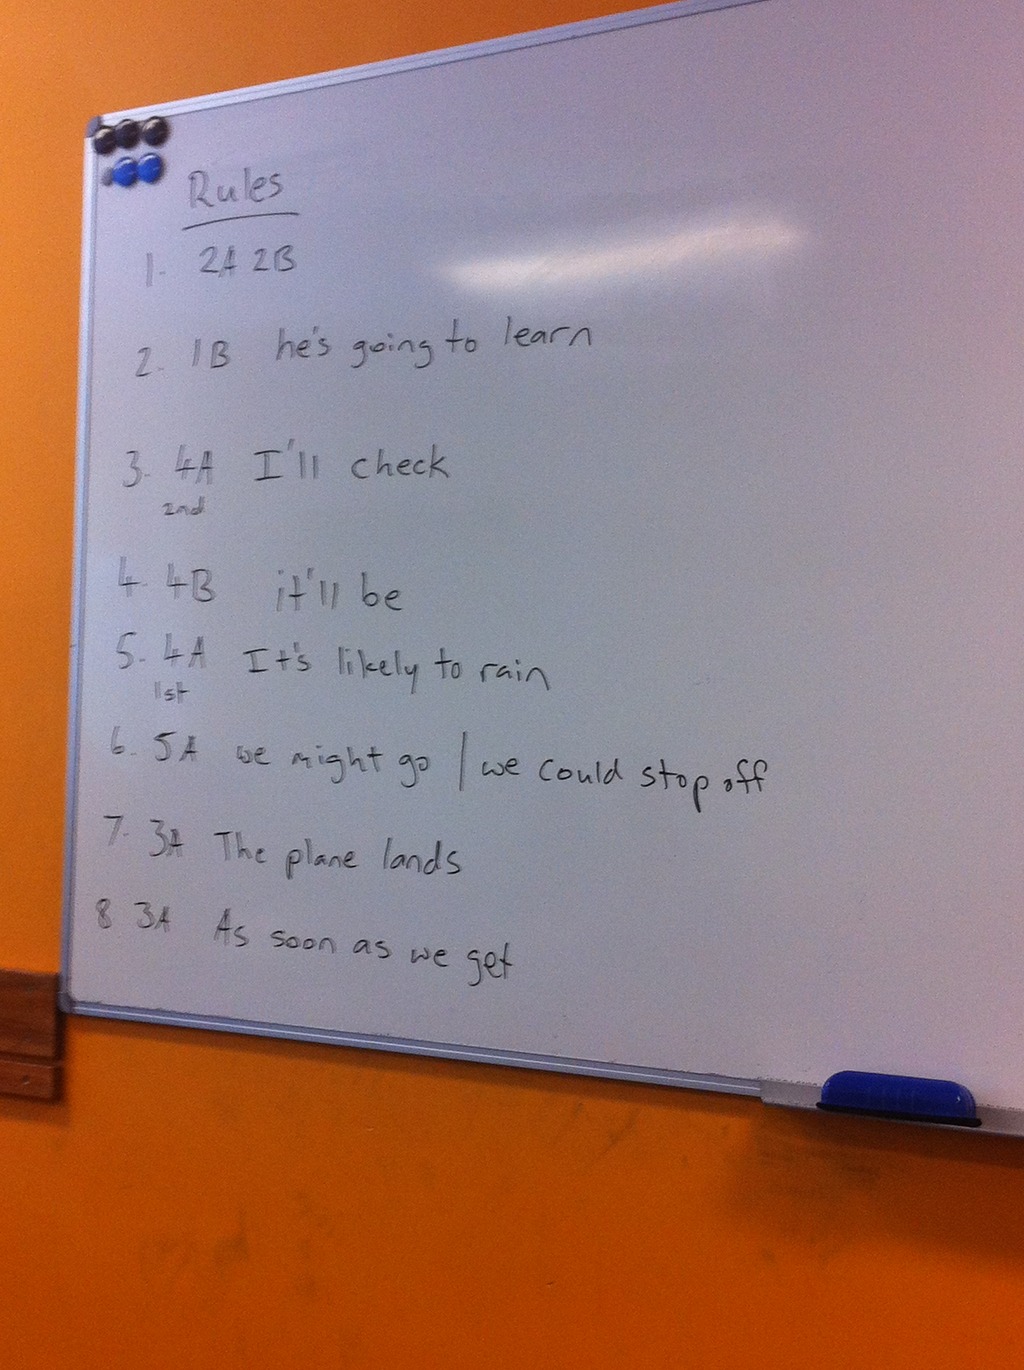 Rules
1. 2A 2B
2. 1B he's going to learn
3. 4A I'll check
2nd
4. 4B it'll be
5. 4A It's likely to rain
1st
6. 5A we might go / we could stop off
7. 3A The plane lands
8 3A As soon as we get